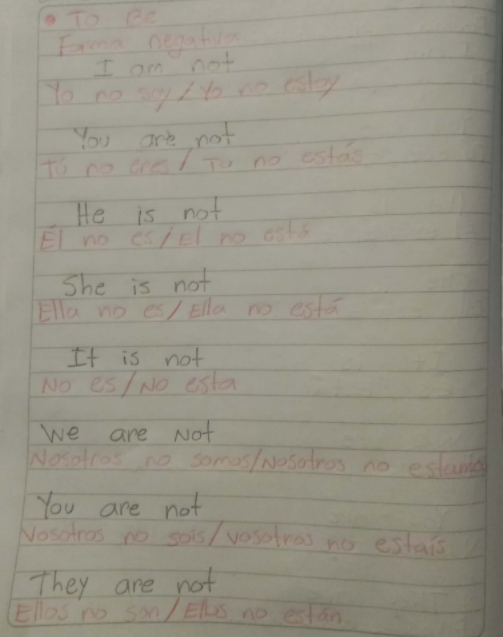 • To Be
Forma negativa
I am not
Yo no soy / Yo no estoy
You are not
Tú no eres / Tú no estás
He is not
Él no es / El no está
She is not
Ella no es / Ella no está
It is not
No es / No esta
We are Not
Nosotros no somos / Nosotros no estamos
You are not
Vosotros no sois / vosotros no estais
They are not
Ellos no son / Ellos no están